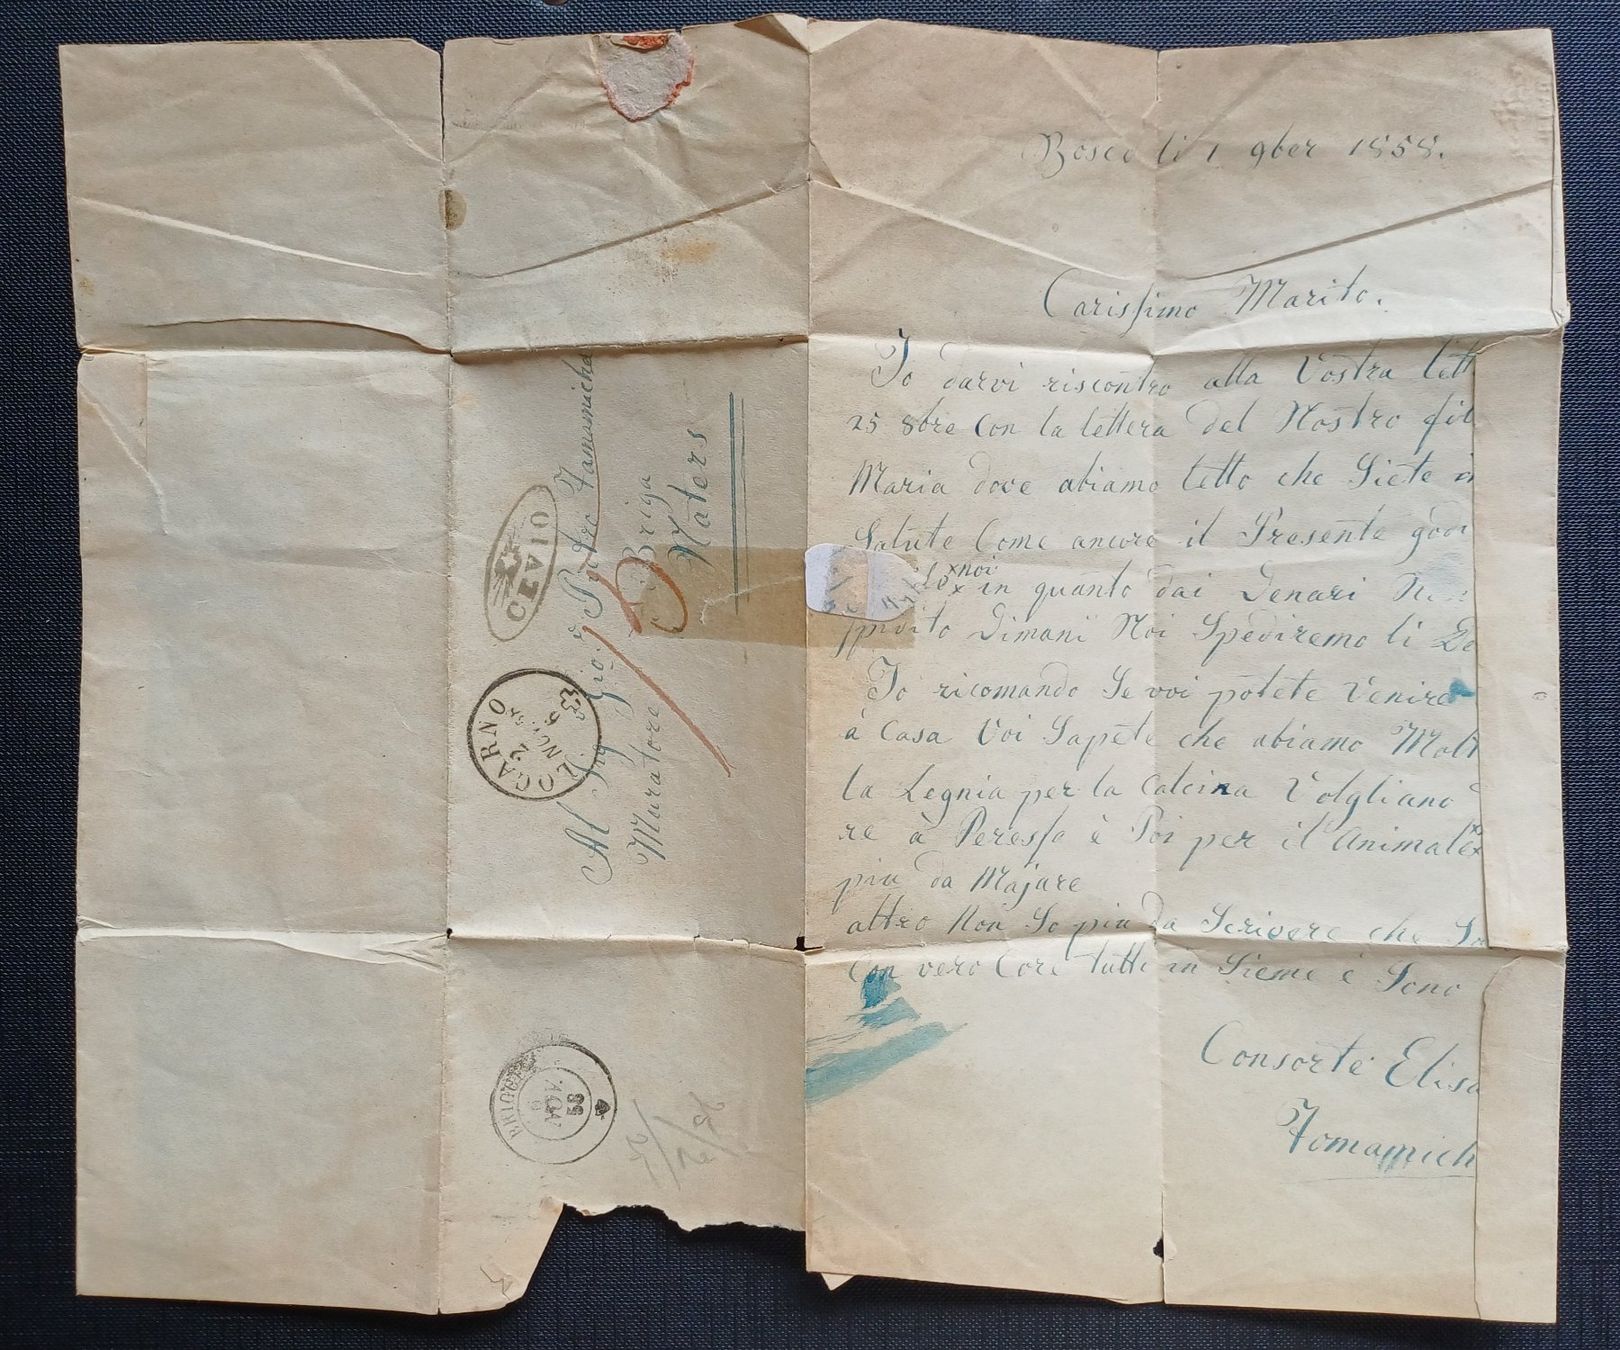 Bosco li 1 9ber 1858.
Carissimo Marito.
Io darvi riscontro alla Vostra lett
25 8bre Con la lettera del Nostro fil
Maria dove abiamo letto che Siete in
Salute Come ancore il Presente god
noi
in quanto dai Denari
Dimani Noi Spediremo li
Io ricomando Se voi potete Venire
à Casa Voi Sapete che abiamo Molt
la Legnia per la Calcina Volgliano
re à Peresso è Poi per il Animale
piu da Majare
altro Non So piu da Scrivere che So
Con vero Core tutti in Sieme è Sono
Consorte Elisa
Tomamich
Al Sig Gio. Pietro
Muratore
Briga
Naters
CEVIO
LOCARNO
2 NOV 58
BRIGUE
NOV
58